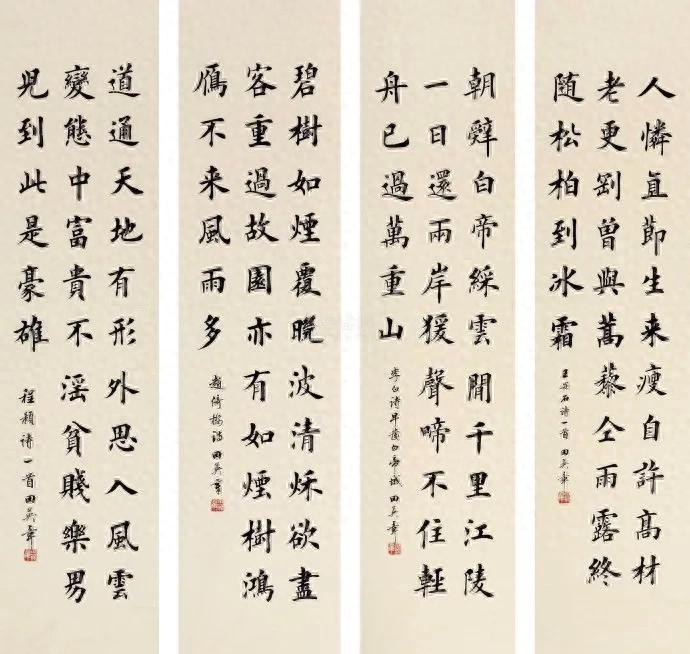 人憐直莭生来瘦自許高材
老更剛曾與蒿藜仝雨露終
随松柏到冰霜
王安石诗一首 田英章
朝辤白帝綵雲間千里江陵
一日還兩岸猨聲啼不住輕
舟已過萬重山
李白诗早發白帝城 田英章
碧樹如煙覆晚波清秌欲盡
客重過故園亦有如煙樹鴻
鴈不来風雨多
趙倚樓诗 田英章
道通天地有形外思入風雲
變態中富貴不淫貧賤樂男
兒到此是豪雄
程顥诗一首 田英章